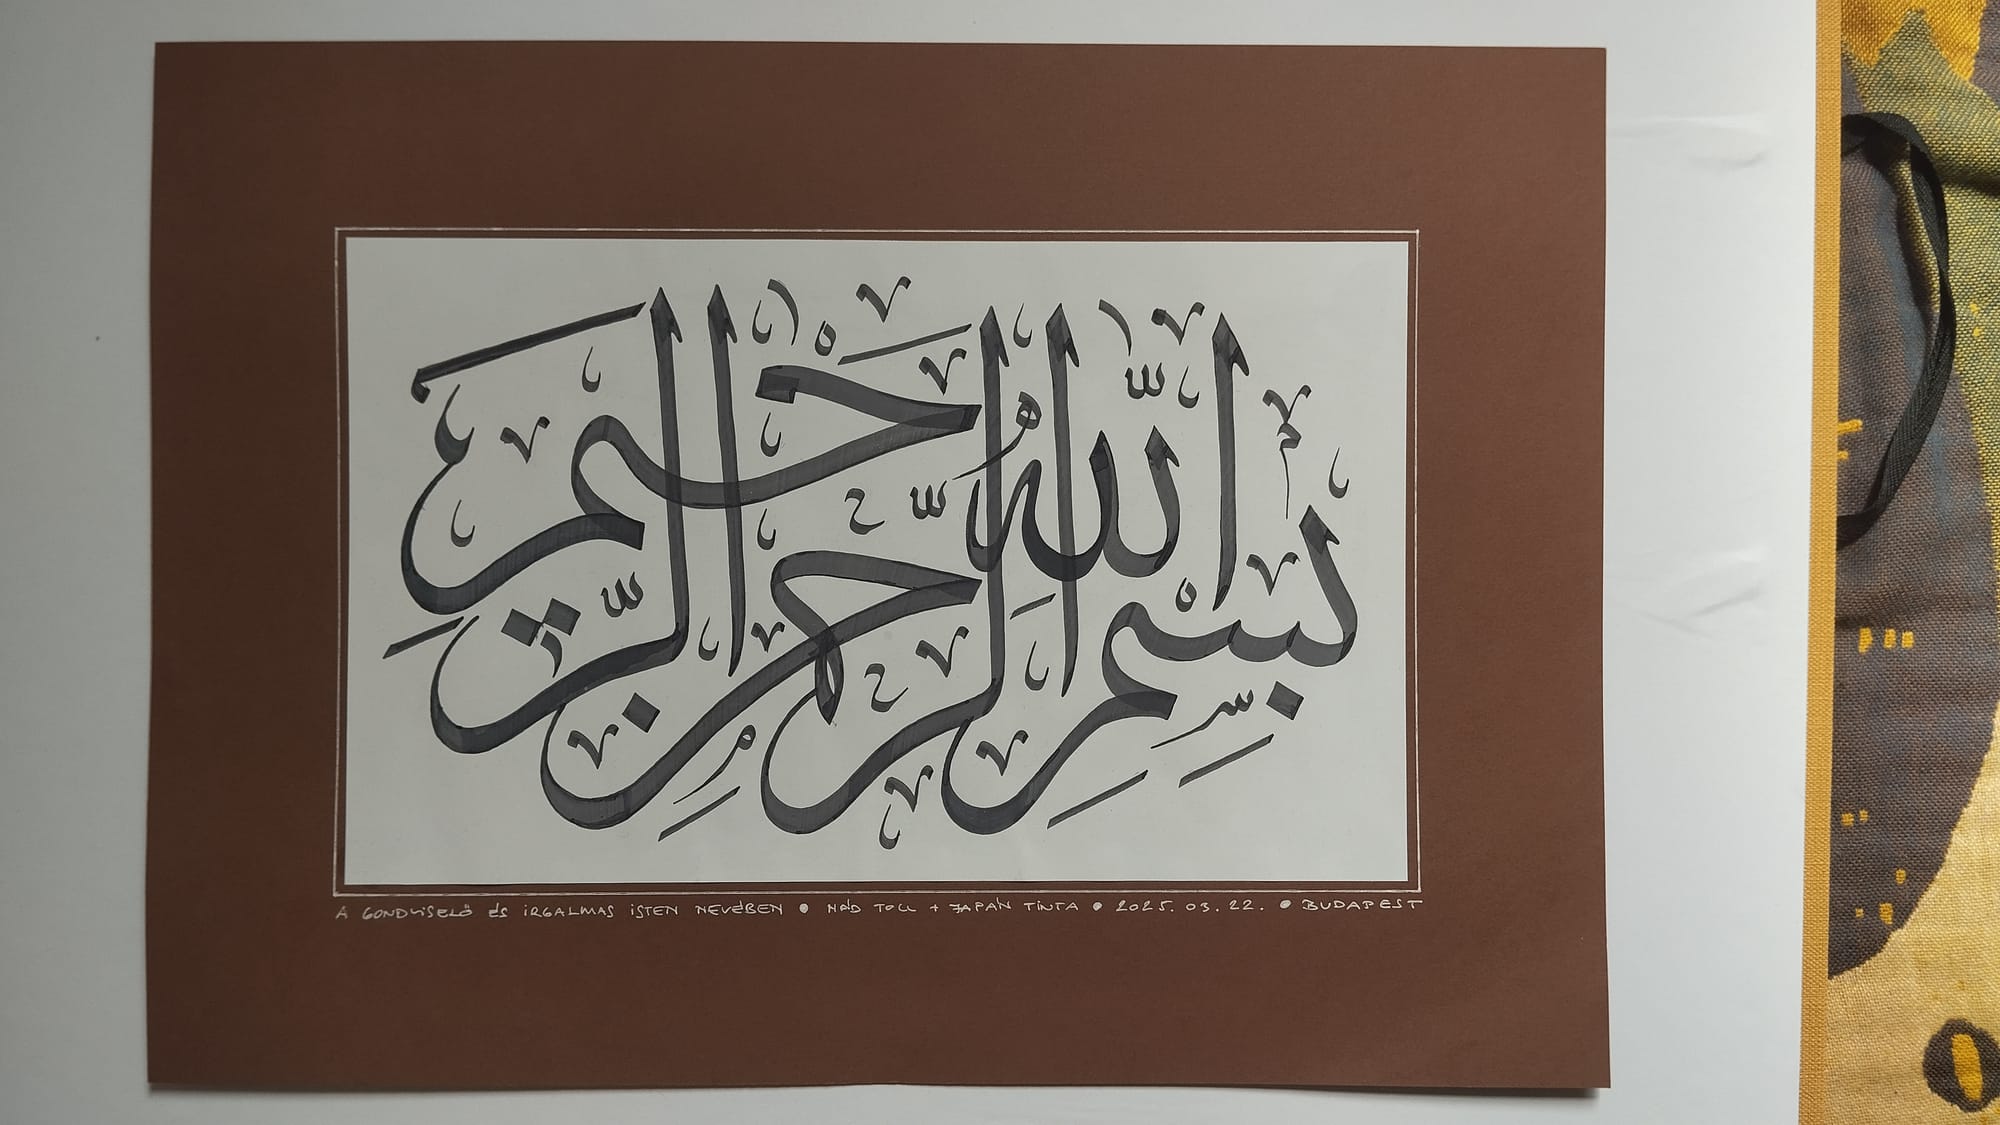 بِسْمِ اللّٰهِ الرَّحْمٰنِ الرَّحِيمِ
A GONDVISELŐ ÉS IRGALMAS ISTEN NEVÉBEN ● NÁD TOLL + JAPÁN TINTA ● 2025. 03. 22. ● BUDAPEST